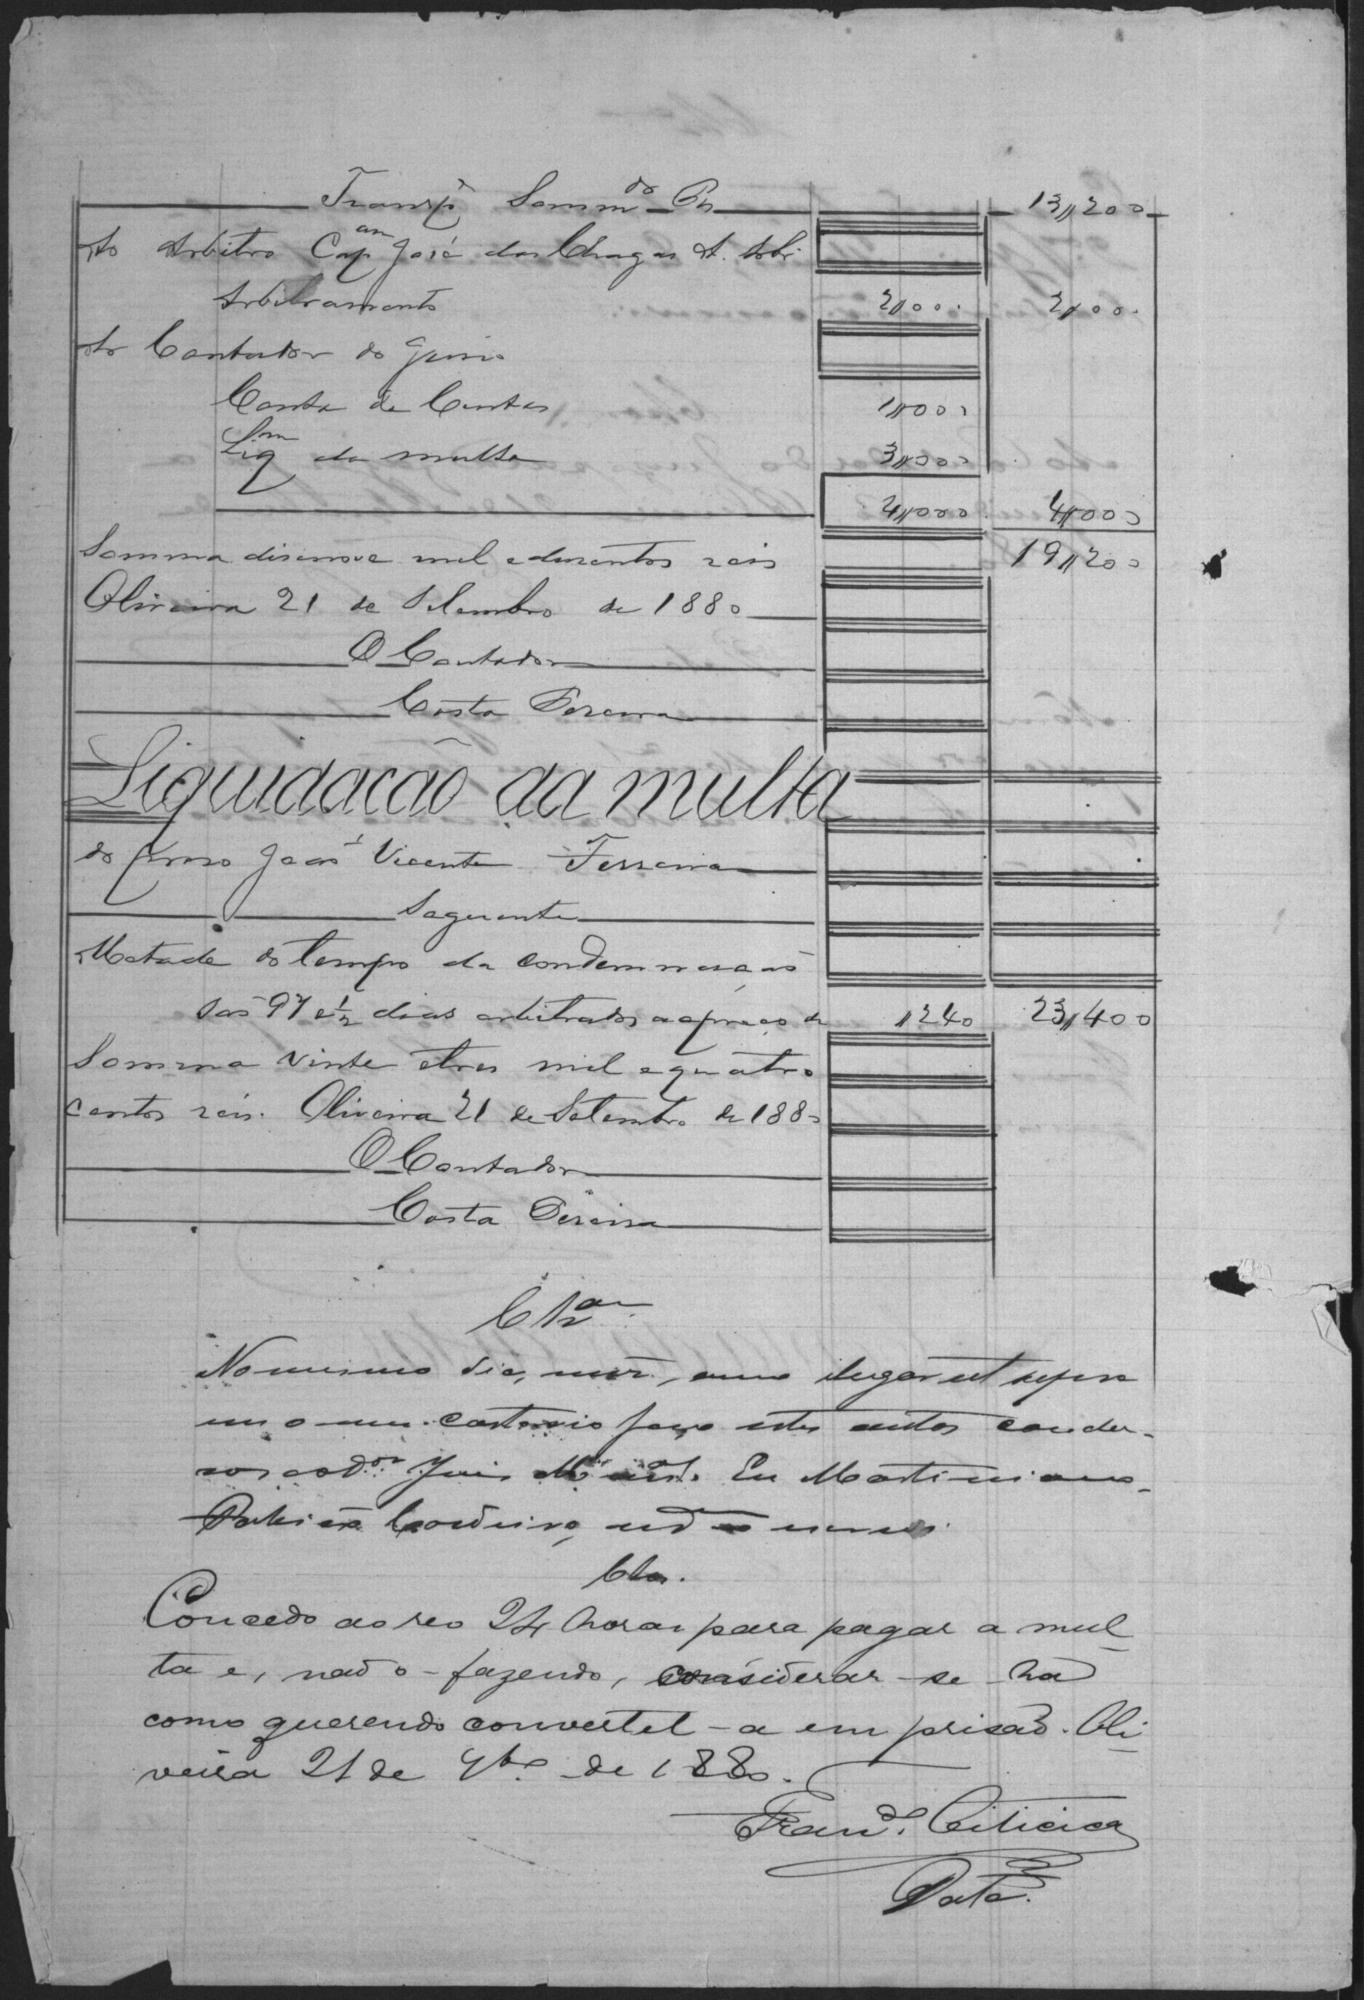 Transp. Somm do Rs 13,,200
Ao Arbitro Capam José das Chagas A.
Arbitramento 2,,000 2,,000
Ao Contador do Juiso
Conta de Custas 1,,000
Liqm da multa 3,,000
4,,000 4,,000
Somma disenove mil e dusentos reis 19,,200
Oliveira 21 de Setembro de 1880
O Contador
Costa Pereira
Liquidacão da multa
do preso João Vicente Ferreira
Saguente
Metade do tempo da condemnação
são 97 e ½ dias arbitrados a preço de ,,240 23,,400
Somma vinte e tres mil e quatro
centos reis. Oliveira 21 de Setembro de 1880
O Contador
Costa Pereira
Clzam
No mesmo dia, mez, anno e lugar ut supra
em o meu cartorio faço estes autos conclu-
sos ao dor Juis Mal. Eu Martiniano
Cordeiro,
Clos.
Concedo ao reo 24 horas para pagar a mul
ta e, não o-fazendo, considerar-se-há
como querendo convertel-a em prisão. Oli
veira 21 de 9bro de 1880.
Data.